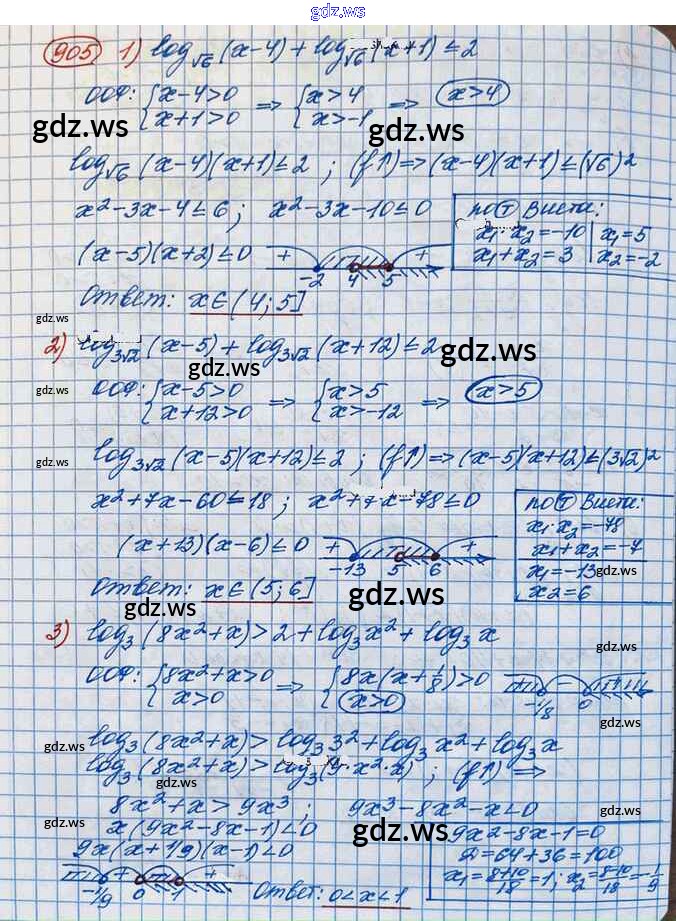 gdz.ws
905 1) log√6 (x-4) + log√6 (x+1) ≤ 2
ООФ: { x-4>0 x+1>0 => { x>4 x>-1 => x>4
gdz.ws gdz.ws
log√6 (x-4)(x+1) ≤ 2 ; (f↑) => (x-4)(x+1) ≤ (√6)²
x²-3x-4 ≤ 6 ; x²-3x-10 ≤ 0
по Т Виета:
x₁·x₂=-10 | x₁=5
x₁+x₂=3 | x₂=-2
(x-5)(x+2) ≤ 0 + -2 4 5 +
Ответ: x∈(4;5]
gdz.ws
2) log3√2 (x-5) + log3√2 (x+12) ≤ 2
gdz.ws gdz.ws
ООФ: { x-5>0 x+12>0 => { x>5 x>-12 => x>5
gdz.ws
log3√2 (x-5)(x+12) ≤ 2 ; (f↑) => (x-5)(x+12) ≤ (3√2)²
gdz.ws
x²+7x-60 ≤ 18 ; x²+7x-78 ≤ 0
по Т Виета:
x₁·x₂=-78
x₁+x₂=-7
x₁=-13
x₂=6
gdz.ws
(x+13)(x-6) ≤ 0 + -13 5 6 +
Ответ: x∈(5;6]
gdz.ws gdz.ws
3) log₃ (8x²+x) > 2 + log₃ x² + log₃ x
gdz.ws
ООФ: { 8x²+x>0 x>0 => { 8x(x+1/8)>0 x>0 - -1/8 0
gdz.ws
log₃ (8x²+x) > log₃ 3² + log₃ x² + log₃ x
gdz.ws
log₃ (8x²+x) > log₃ (9·x²·x) ; (f↑) =>
gdz.ws
8x²+x > 9x³ ; 9x³-8x²-x < 0
gdz.ws
x(9x²-8x-1) < 0
gdz.ws
9x(x+1/9)(x-1) < 0
9x²-8x-1=0
D=64+36=100
x₁=8+10/18=1; x₂=8-10/18=-1/9
-1/9 + 0 1 +
Ответ: 0<x<1